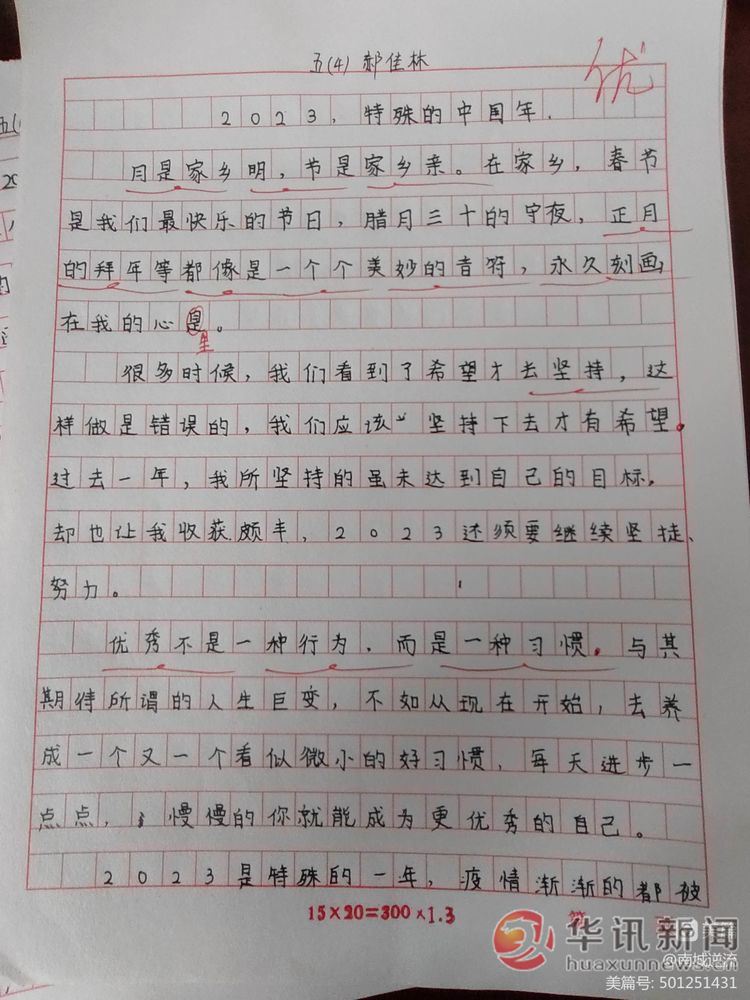 五(4) 郝佳林
优
2023，特殊的中国年.
月是家乡明，节是家乡亲。在家乡，春节
是我们最快乐的节日，腊月三十的守夜，正月
的拜年等都像是一个个美妙的音符，永久刻画
在我的心是。
里
很多时候，我们看到了希望才去坚持，这
样做是错误的，我们应该坚持下去才有希望。
过去一年，我所坚持的虽未达到自己的目标，
却也让我收获颇丰，2023还须要继续坚持、
努力。
优秀不是一种行为，而是一种习惯。与其
期待所谓的人生巨变，不如从现在开始，去养
成一个又一个看似微小的好习惯，每天进步一
点点，慢慢的你就能成为更优秀的自己。
2023是特殊的一年，疫情渐渐的都被
15×20=300×1.3
华讯新闻
huaxunnews.cn
@南城逆流
美篇号: 501251431